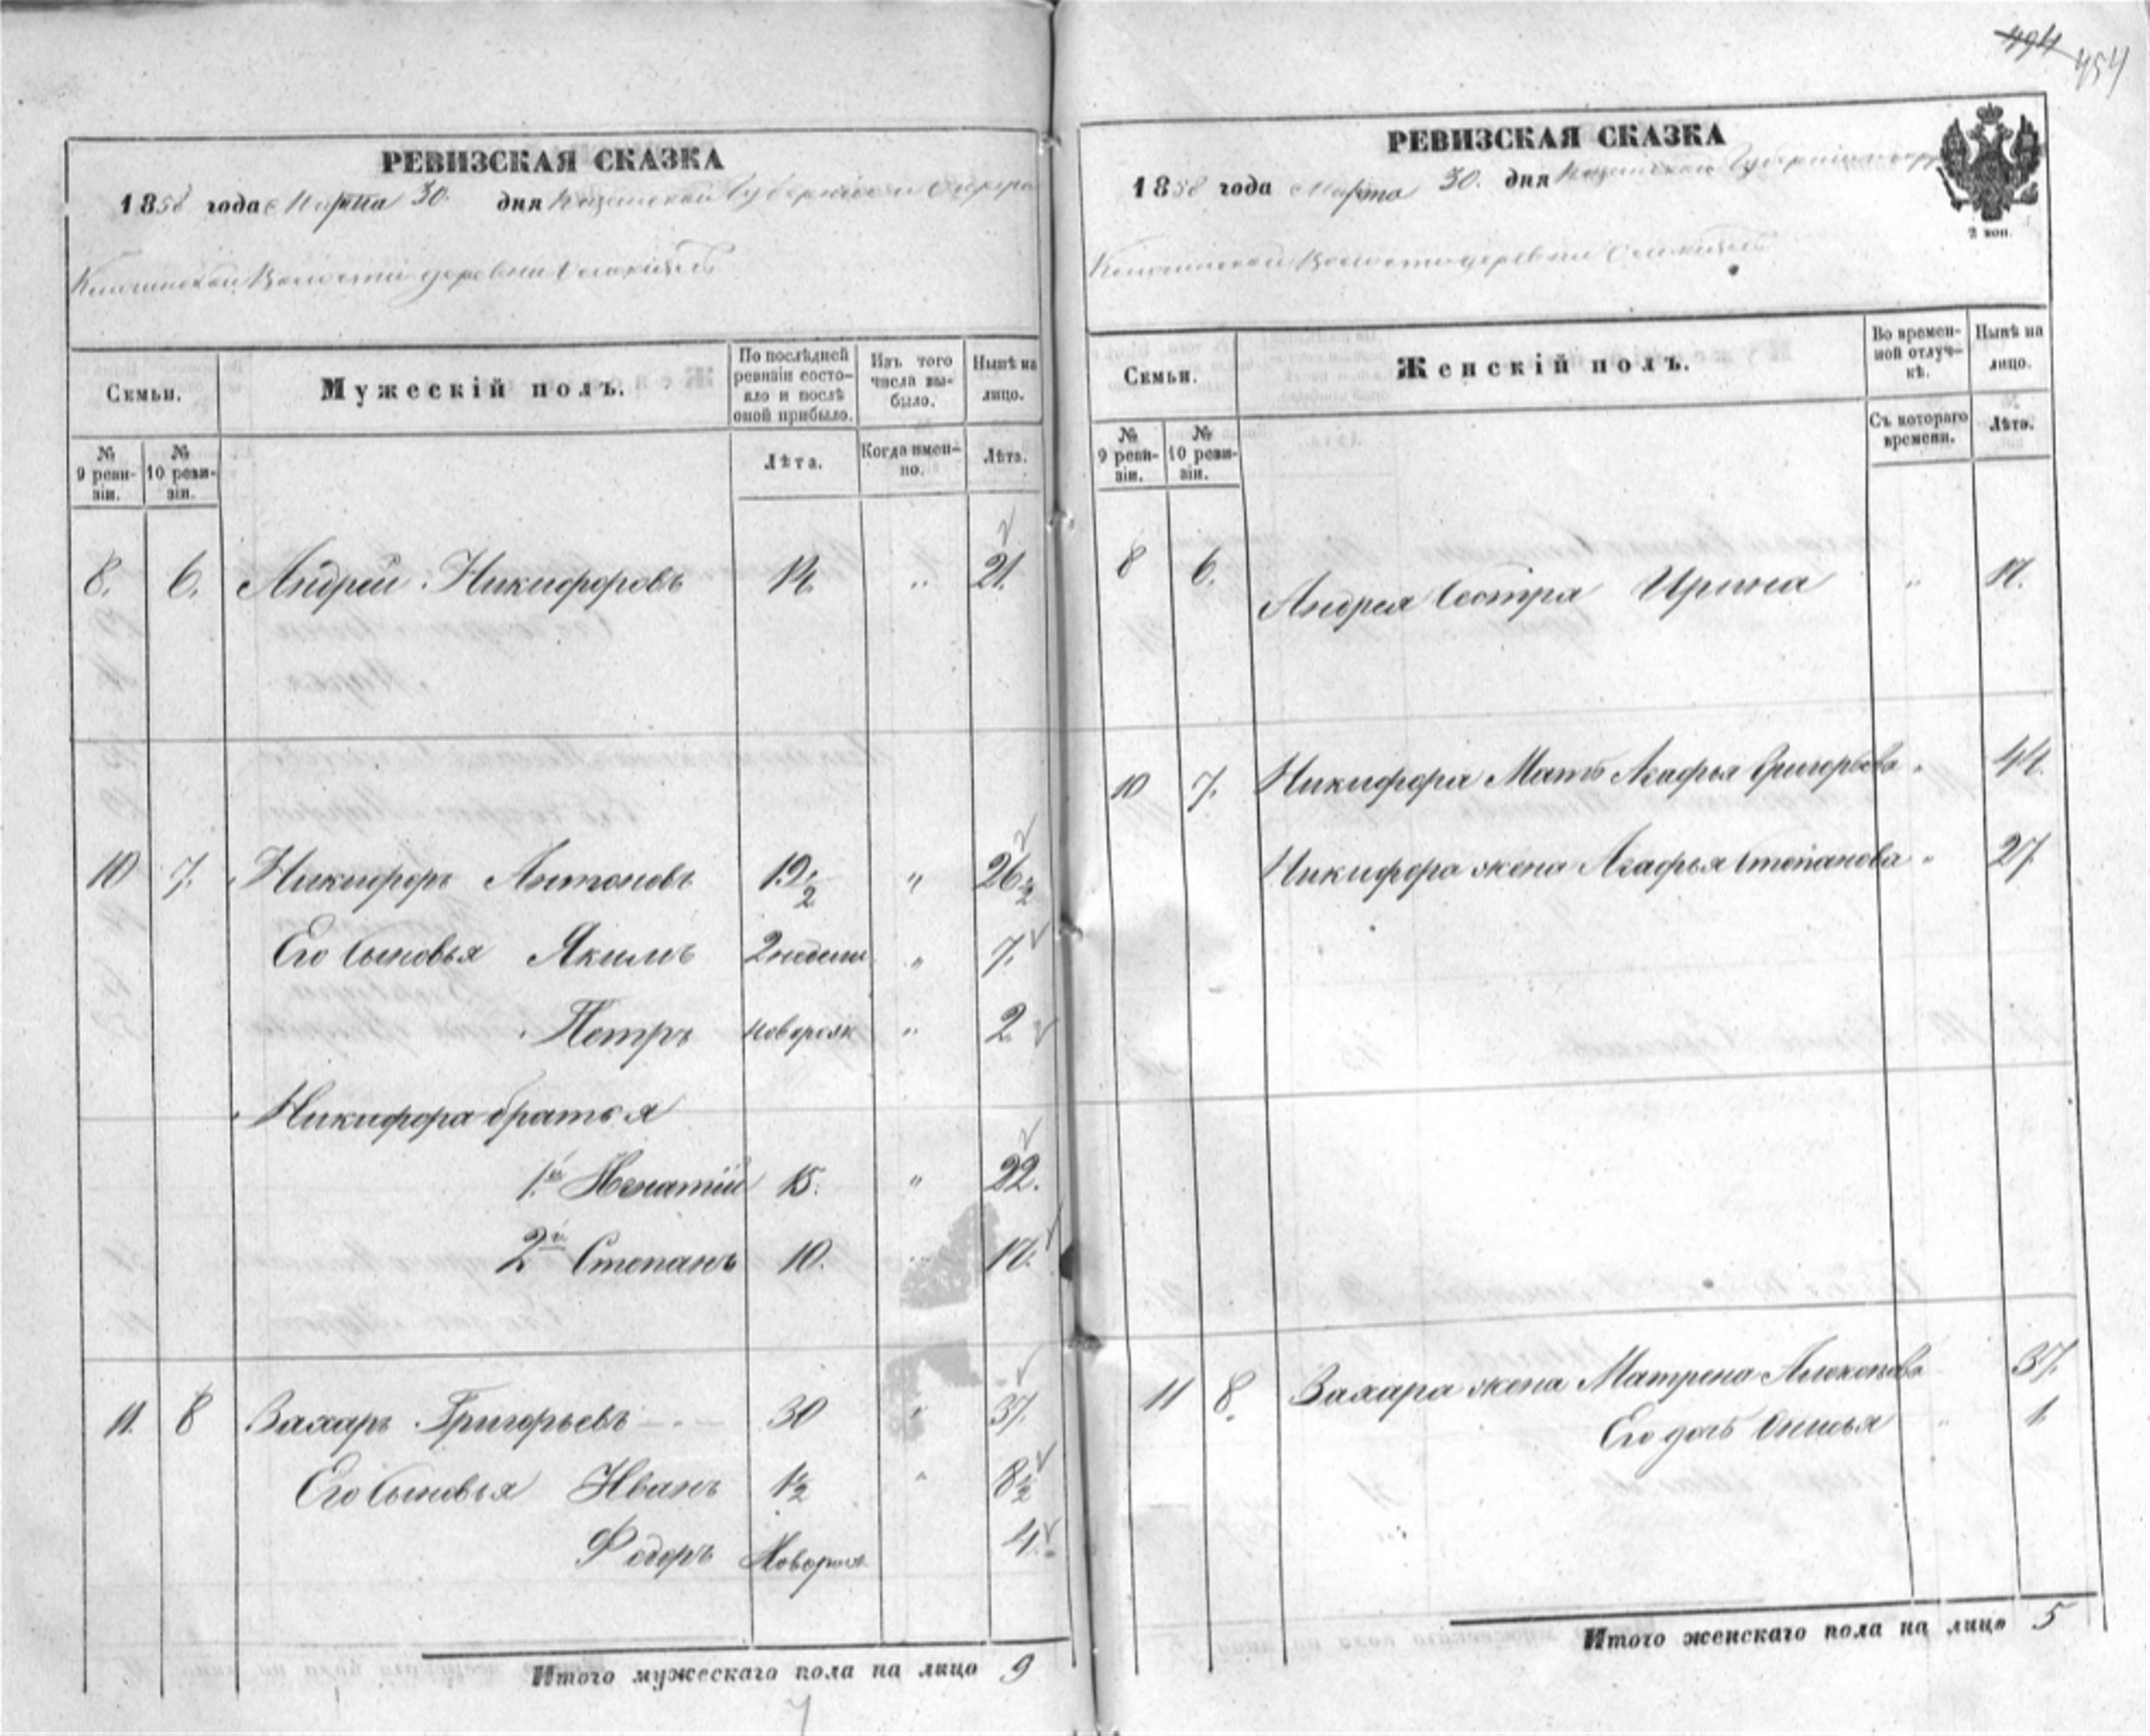 454
РЕВИЗСКАЯ СКАЗКА
1858 года Марта 30. дня Казанской Губерніи и Округа
волости деревни
Семьи.
Мужескій полъ.
По послѣдней ревизіи состояло и послѣ оной прибыло.
Изъ того числа выбыло.
Нынѣ на лицо.
№ 9 ревизіи.
№ 10 ревизіи.
Лѣта.
Когда именно.
Лѣта.
8. 6. Андрей Никифоровъ 14. " 21.
10 7. Никифоръ Антоновъ 19 1/2 " 26 1/2
Его Сыновья Якимъ 2 недели " 7.
Петръ новорож " 2
Никифора братья
1й Игнатій 15. " 22.
2й Степанъ 10. " 17.
11. 8 Захаръ Григорьевъ 30 " 37.
Его Сыновья Иванъ 1 1/2 " 8 1/2
Федоръ Новорож 4.
Итого мужескаго пола на лицо 9
РЕВИЗСКАЯ СКАЗКА
1858 года Марта 30. дня Казанской Губерніи
2 коп.
Волости деревни
Семьи.
Женскій полъ.
Во временной отлучкѣ.
Нынѣ на лицо.
№ 9 ревизіи.
№ 10 ревизіи.
Съ котораго времени.
Лѣта.
8 6. Андрея Сестра Ирина " 17.
10 7. Никифора Мать Агафья Григорьева " 44.
Никифора жена Агафья Степанова " 27.
11 8. Захара жена Матрена 37.
Его дочь " 1.
Итого женскаго пола на лицо 5